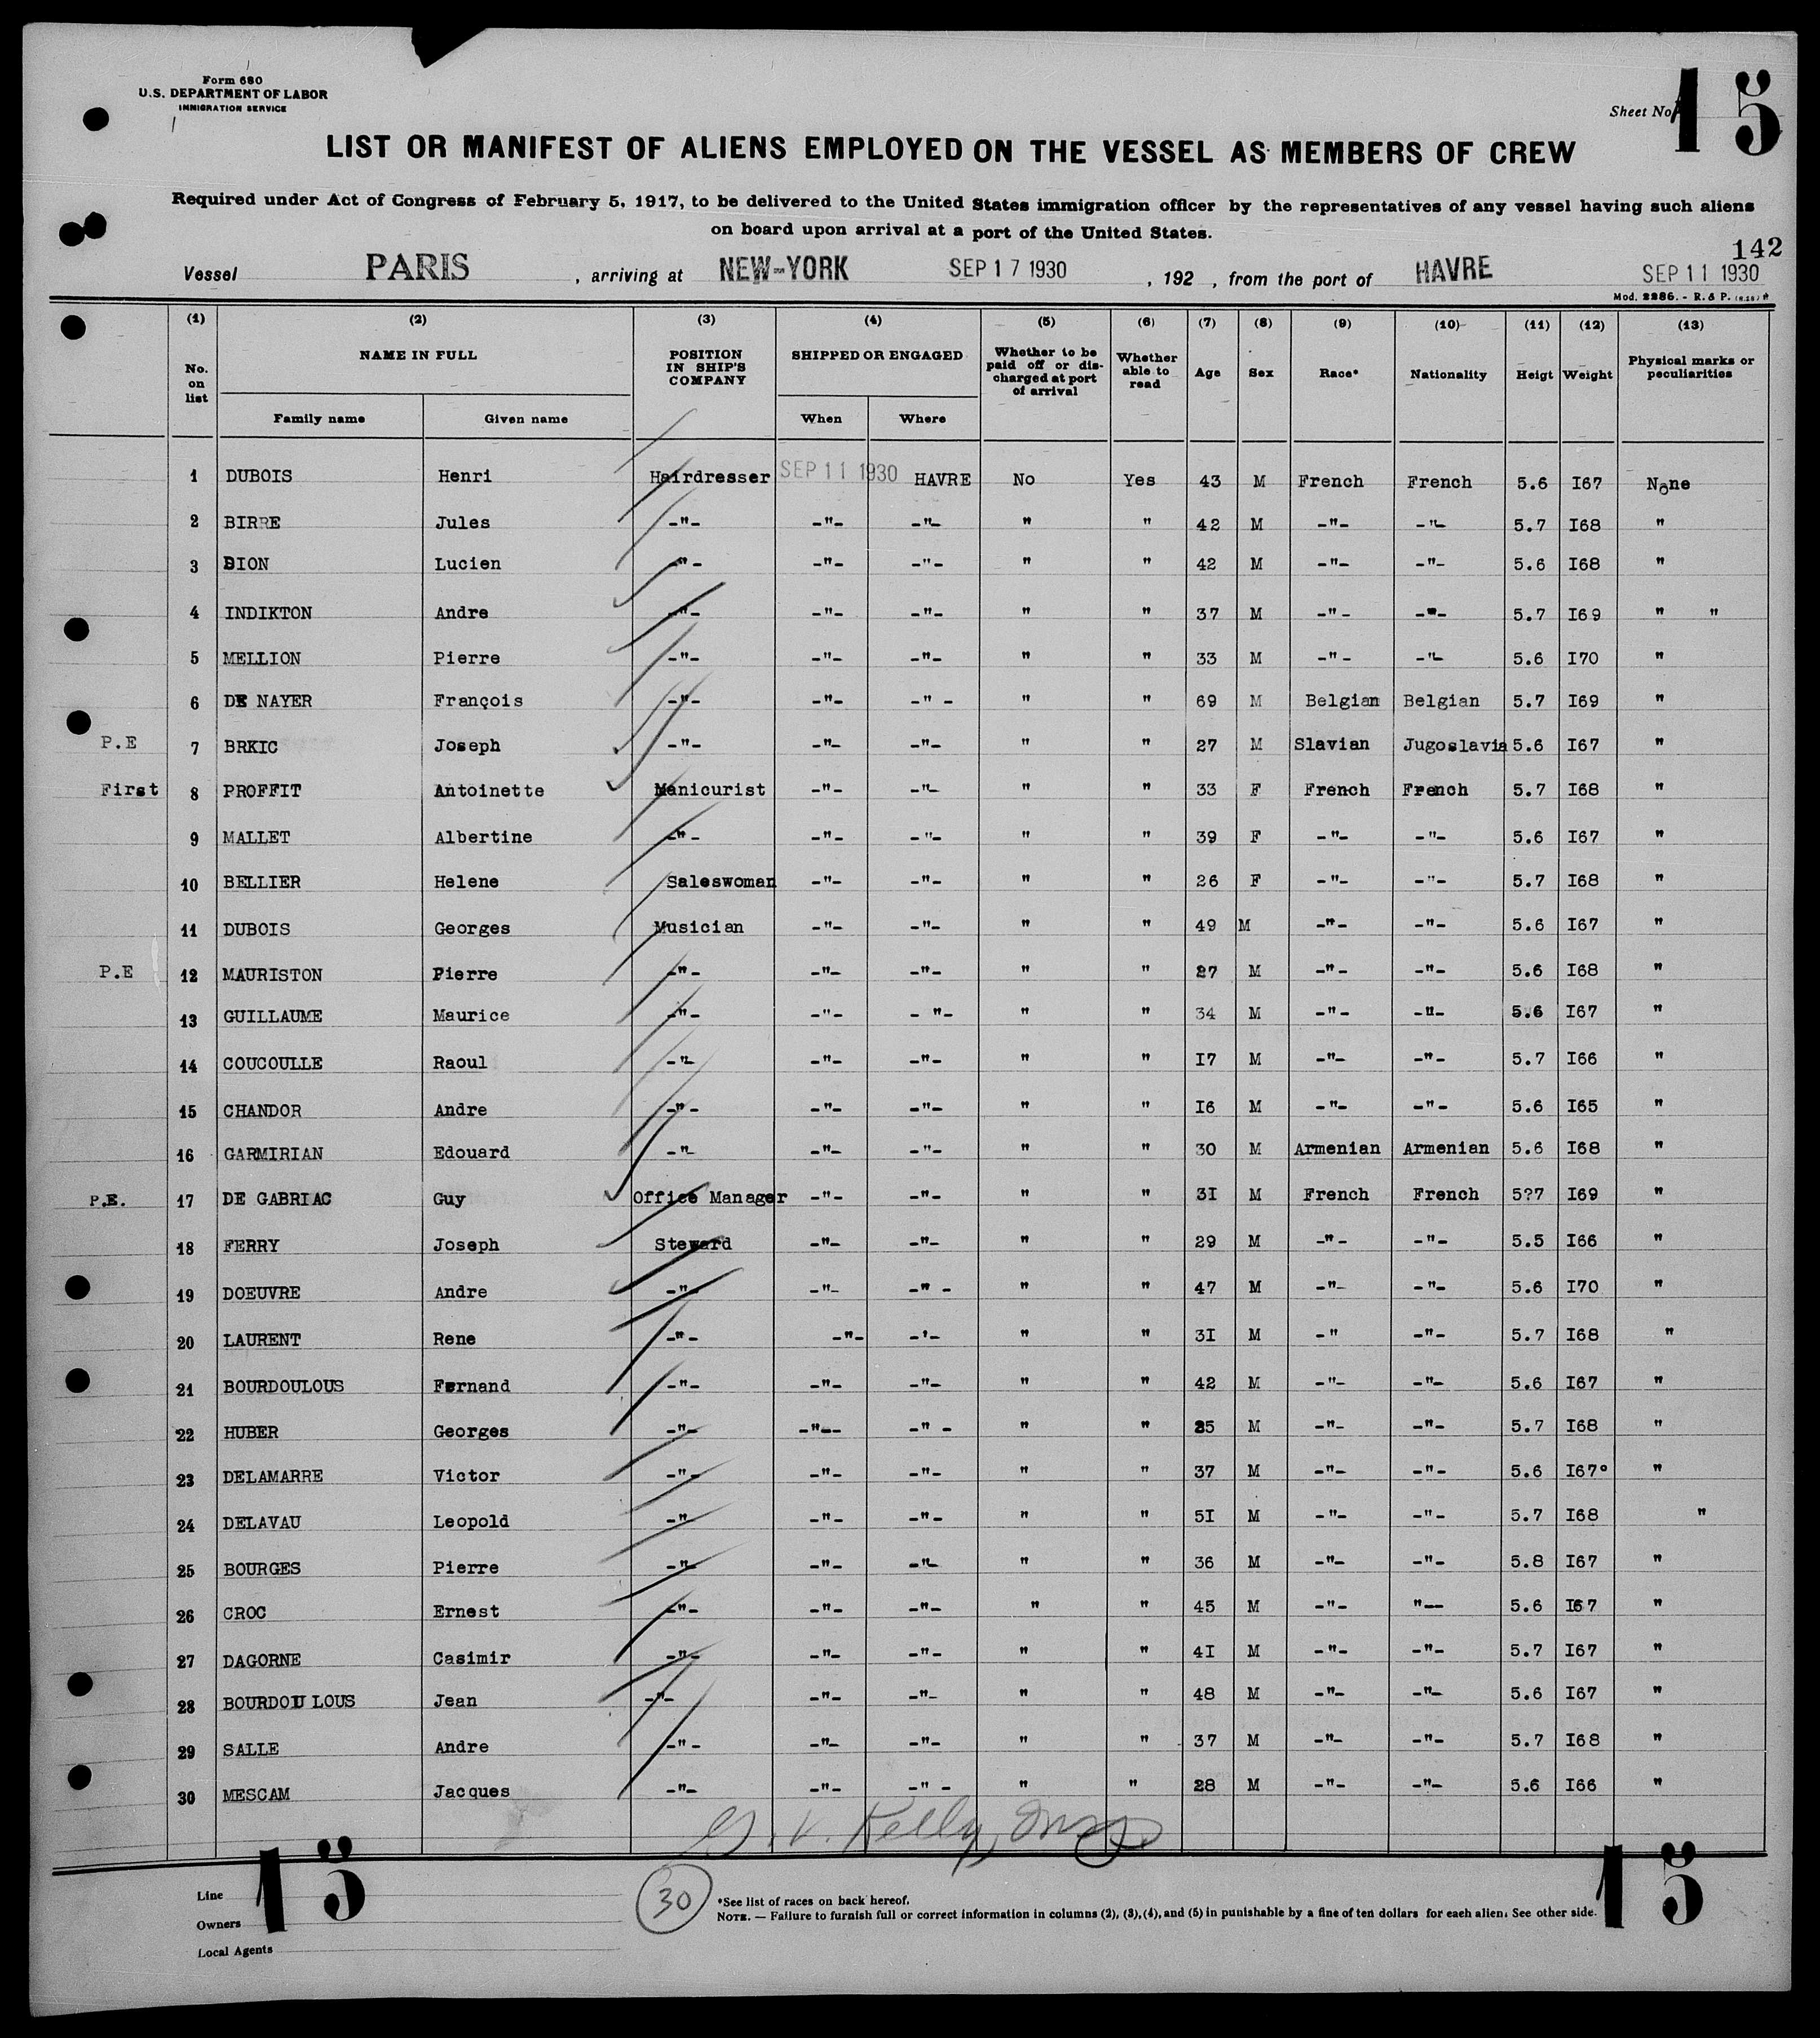 Form 680
U.S. DEPARTMENT OF LABOR
IMMIGRATION SERVICE
Sheet No. 15
LIST OR MANIFEST OF ALIENS EMPLOYED ON THE VESSEL AS MEMBERS OF CREW
Required under Act of Congress of February 5, 1917, to be delivered to the United States immigration officer by the representatives of any vessel having such aliens
on board upon arrival at a port of the United States.
142
Vessel PARIS , arriving at NEW-YORK SEP 17 1930 , 192 , from the port of HAVRE SEP 11 1930
Mod. 2286. - R. & P.
(1) (2) (3) (4) (5) (6) (7) (8) (9) (10) (11) (12) (13)
No. on list NAME IN FULL POSITION IN SHIP'S COMPANY SHIPPED OR ENGAGED Whether to be paid off or discharged at port of arrival Whether able to read Age Sex Race* Nationality Heigt Weight Physical marks or peculiarities
Family name Given name When Where
1 DUBOIS Henri Hairdresser SEP 11 1930 HAVRE No Yes 43 M French French 5.6 I67 None
2 BIRRE Jules -"- -"- -"- " " 42 M -"- -"- 5.7 I68 "
3 DION Lucien -"- -"- -"- " " 42 M -"- -"- 5.6 I68 "
4 INDIKTON Andre -"- -"- -"- " " 37 M -"- -"- 5.7 I69 " "
5 MELLION Pierre -"- -"- -"- " " 33 M -"- -"- 5.6 I70 "
6 DE NAYER François -"- -"- -" - " " 69 M Belgian Belgian 5.7 I69 "
P.E 7 BRKIC Joseph -"- -"- -"- " " 27 M Slavian Jugoslavia 5.6 I67 "
First 8 PROFFIT Antoinette Manicurist -"- -"- " " 33 F French French 5.7 I68 "
9 MALLET Albertine -"- -"- -"- " " 39 F -"- -"- 5.6 I67 "
10 BELLIER Helene Saleswoman -"- -"- " " 26 F -"- -"- 5.7 I68 "
11 DUBOIS Georges Musician -"- -"- " " 49 M -"- -"- 5.6 I67 "
P.E 12 MAURISTON Pierre -"- -"- -"- " " 27 M -"- -"- 5.6 I68 "
13 GUILLAUME Maurice -"- -"- - "- " " 34 M -"- -"- 5.6 I67 "
14 COUCOULLE Raoul -"- -"- -"- " " I7 M -"- -"- 5.7 I66 "
15 CHANDOR Andre -"- -"- -"- " " I6 M -"- -"- 5.6 I65 "
16 GARMIRIAN Edouard -"- -"- -"- " " 30 M Armenian Armenian 5.6 I68 "
P.E. 17 DE GABRIAC Guy Office Manager -"- -"- " " 3I M French French 5?7 I69 "
18 FERRY Joseph Steward -"- -"- " " 29 M -"- -"- 5.5 I66 "
19 DOEUVRE Andre -"- -"- -" - " " 47 M -"- -"- 5.6 I70 "
20 LAURENT Rene -"- -"- -'- " " 3I M -" -"- 5.7 I68 "
21 BOURDOULOUS Fernand -"- -"- -"- " " 42 M -"- -"- 5.6 I67 "
22 HUBER Georges -"- -"-- -" - " " 25 M -"- -"- 5.7 I68 "
23 DELAMARRE Victor -"- -"- -"- " " 37 M -"- -"- 5.6 I67° "
24 DELAVAU Leopold -"- -"- -"- " " 5I M -"- -"- 5.7 I68 "
25 BOURGES Pierre -"- -"- -"- " " 36 M -"- -"- 5.8 I67 "
26 CROC Ernest -"- -"- -"- " " 45 M -"- "-- 5.6 I67 "
27 DAGORNE Casimir -"- -"- -"- " " 4I M -"- -"- 5.7 I67 "
28 BOURDOU LOUS Jean -"- -"- -"- " " 48 M -"- -"- 5.6 I67 "
29 SALLE Andre -"- -"- -"- " " 37 M -"- -"- 5.7 I68 "
30 MESCAM Jacques -"- -"- -" - " " 28 M -"- -"- 5.6 I66 "
G. V. Kelly, Insp.
15 15
Line
Owners
Local Agents
30
*See list of races on back hereof.
NOTE. — Failure to furnish full or correct information in columns (2), (3), (4), and (5) in punishable by a fine of ten dollars for each alien. See other side.